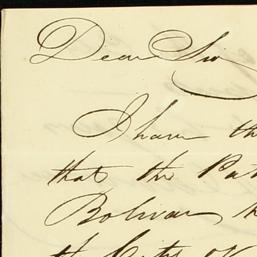 Dear Sir
I have th
that the Pat
Bolivar, th